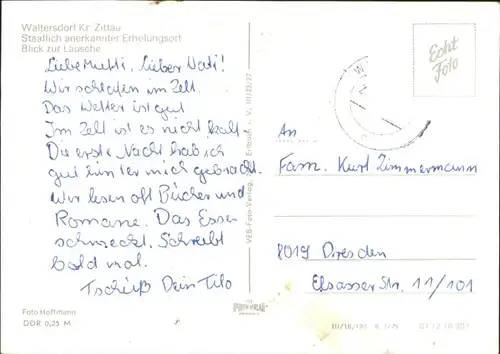 Waltersdorf Kr. Zittau
Staatlich anerkannter Erholungsort
Blick zur Lausche
Liebe Mutti, Lieber Vati!
Wir schlafen im Zelt.
Das Wetter ist gut
Im Zelt ist es nicht kalt.
Die erste Nacht hab ich
gut hinter mich gebracht.
Wir lesen oft Bücher und
Romane. Das Essen
schmeckt. Schreibt
bald mal.
Tschüß Dein Tilo
Foto Hoffmann
DDR 0,25 M
VEB-Foto-Verlag Erlbach i. V. III/23/27
Echt
Foto
An
Fam. Kurt Zimmermann
8019 Dresden
Elsasser Str. 11/101